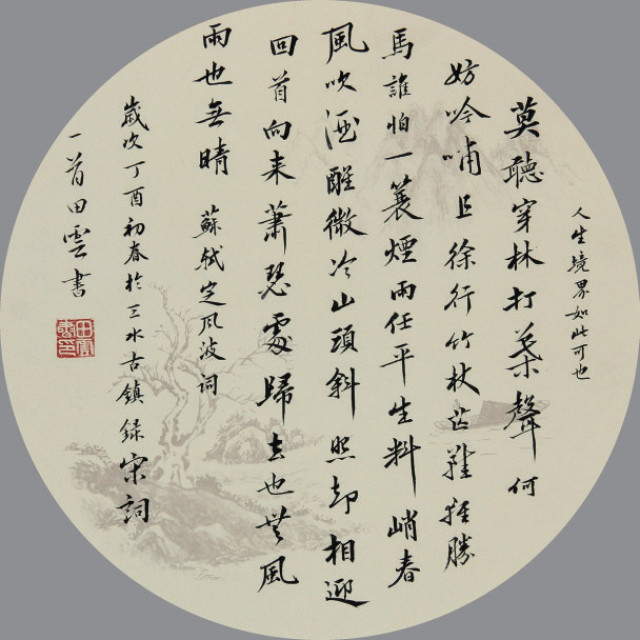 人生境界如此可也
莫聽穿林打葉聲何
妨吟嘯且徐行竹杖芒鞋輕勝
馬誰怕一蓑煙雨任平生料峭春
風吹酒醒微冷山頭斜照却相迎
回首向来蕭瑟處歸去也無風
雨也無晴 蘇軾定風波詞
歲次丁酉初春於三水古鎮録宋詞
一首田雲書